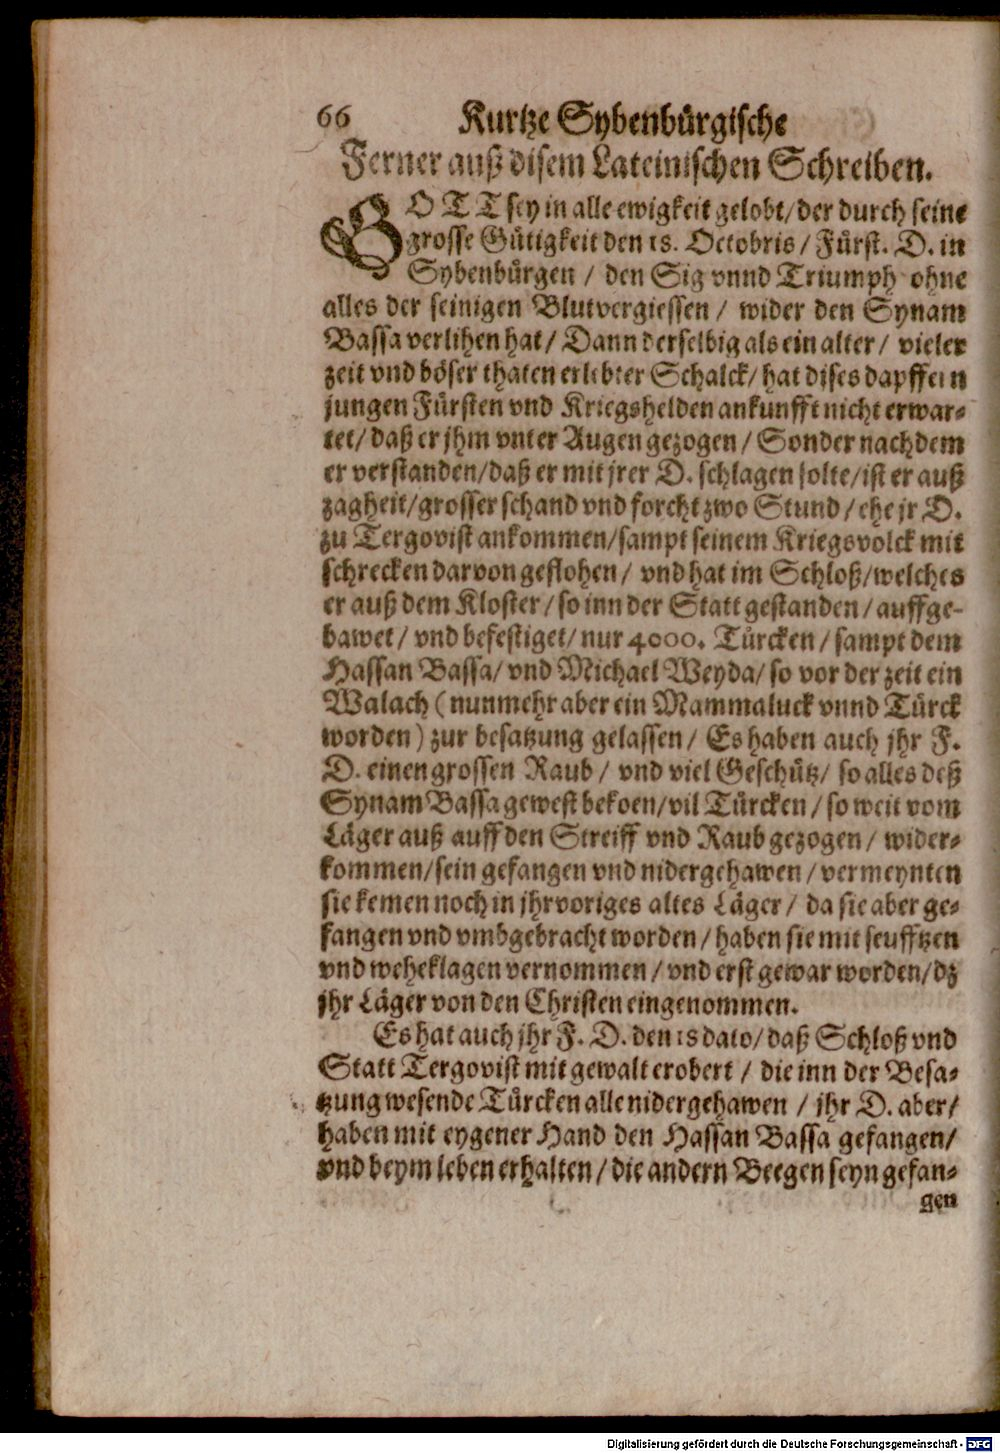 66 Kurtze Sybenbürgische
Ferner auß disem Lateinischen Schreiben.
GOTT sey in alle ewigkeit gelobt/ der durch seine
grosse Gütigkeit den 18. Octobris / Fürst. D. in
Sybenbürgen / den Sig vnnd Triumph ohne
alles der seinigen Blutvergiessen / wider den Synam
Bassa verlihen hat/ Dann derselbig als ein alter/ vieler
zeit vnd böser thaten erlebter Schalck/ hat dises dapffern
jungen Fürsten vnd Kriegshelden ankunfft nicht erwar-
tet/ daß er jhm vnter Augen gezogen / Sonder nachdem
er verstanden/daß er mit jrer D. schlagen solte/ist er auß
zagheit/grosser schand vnd forcht zwo Stund / ehe jr D.
zu Tergovist ankommen/sampt seinem Kriegsvolck mit
schrecken darvon geflohen / vnd hat im Schloß/welches
er auß dem Kloster / so inn der Statt gestanden / auffge-
bawet / vnd befestiget/ nur 4000. Türcken / sampt dem
Hassan Bassa/ vnd Michael Weyda/ so vor der zeit ein
Walach ( nunmehr aber ein Mammaluck vnnd Türck
worden ) zur besatzung gelassen / Es haben auch jhr F.
D. einen grossen Raub / vnd viel Geschütz/ so alles deß
Synam Bassa gewest bekoen/vil Türcken / so weit vom
Läger auß auff den Streiff vnd Raub gezogen / wider-
kommen/sein gefangen vnd nidergehawen / vermeynten
sie kemen noch in jhr voriges altes Läger / da sie aber ge-
fangen vnd vmbgebracht worden / haben sie mit seufftzen
vnd weheklagen vernommen / vnd erst gewar worden/dz
jhr Läger von den Christen eingenommen.
Es hat auch jhr F. D. den 18 dato/ daß Schloß vnd
Statt Tergovist mit gewalt erobert / die inn der Besa-
tzung wesende Türcken alle nidergehawen / jhr D. aber/
haben mit eygener Hand den Hassan Bassa gefangen/
vnd beym leben erhalten / die andern Beegen seyn gefan-
gen
Digitalisierung gefördert durch die Deutsche Forschungsgemeinschaft - DFG